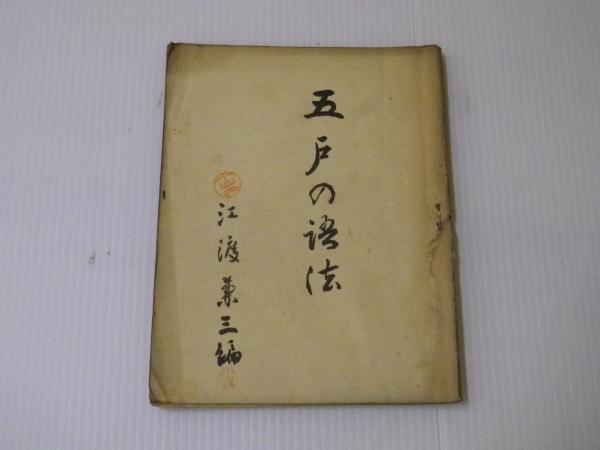 五戸の語法
江渡兼三編